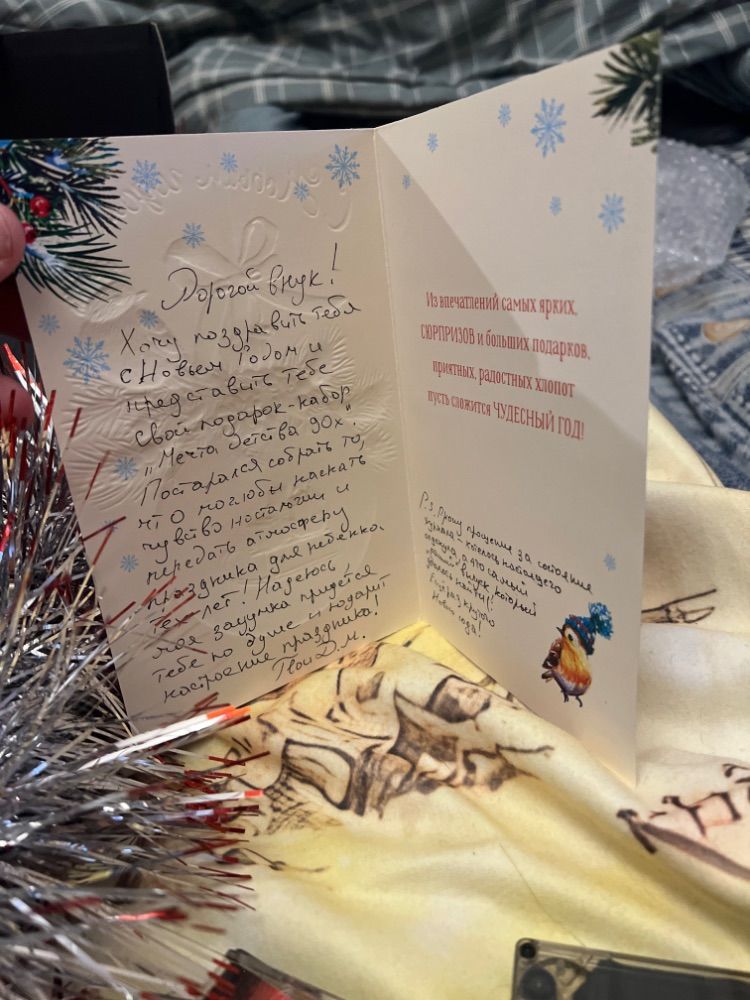 Дорогой внук!
Хочу поздравить тебя
с Новым Годом и
представить тебе
свой подарок-набор
„Мечта детства 90х".
Постарался собрать то,
что могло бы навеять
чувство ностальгии и
передать атмосферу
праздника для ребенка
тех лет! Надеюсь,
моя задумка придётся
тебе по душе и подарит
настроение праздника!
Твой Д.М.
Из впечатлений самых ярких,
СЮРПРИЗОВ и больших подарков,
приятных, радостных хлопот
пусть сложится ЧУДЕСНЫЙ ГОД!
P.S. Прошу прощение за состояние
журнала - хотелось настоящего
а это самый
выпуск, который
удалось найти!!
Ещё раз крутого
Нового года!